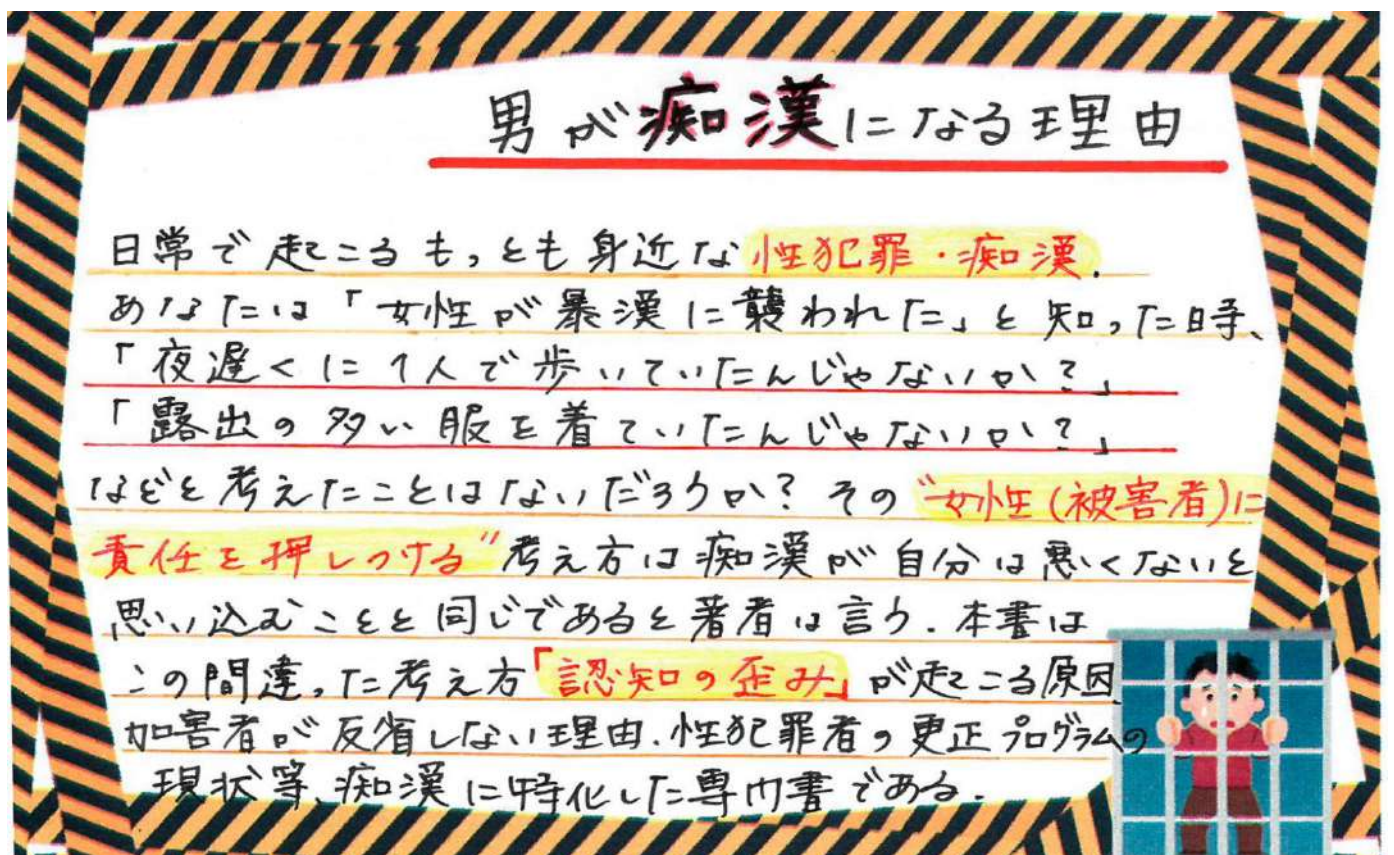 男が痴漢になる理由
日常で起こるもっとも身近な性犯罪・痴漢.
あなたは「女性が暴漢に襲われた」と知った時、
「夜遅くに1人で歩いていたんじゃないか?」
「露出の多い服を着ていたんじゃないか?」
などと考えたことはないだろうか? その"女性(被害者)に
責任を押しつける"考え方は痴漢が自分は悪くないと
思い込むことと同じであると著者は言う.本書は
この間違った考え方「認知の歪み」が起こる原因
加害者が反省しない理由.性犯罪者の更正プログラムの
現状等、痴漢に特化した専門書である.